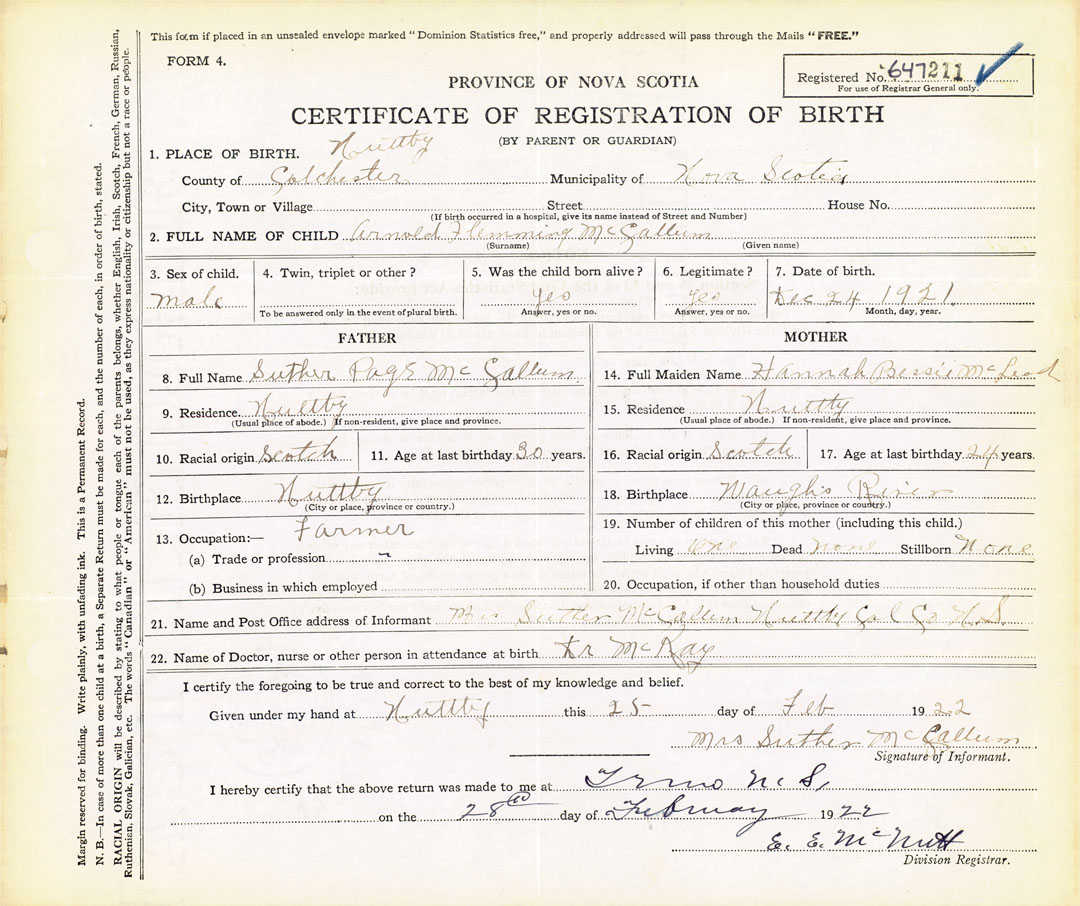 This form if placed in an unsealed envelope marked "Dominion Statistics free," and properly addressed will pass through the Mails "FREE."
FORM 4.
Registered No. 647211
For use of Registrar General only.
PROVINCE OF NOVA SCOTIA
CERTIFICATE OF REGISTRATION OF BIRTH
(BY PARENT OR GUARDIAN)
1. PLACE OF BIRTH. Nuttby
County of Colchester Municipality of Nova Scotia
City, Town or Village Street House No.
(If birth occurred in a hospital, give its name instead of Street and Number)
2. FULL NAME OF CHILD Arnold Flemming McCallum
(Surname) (Given name)
3. Sex of child. 4. Twin, triplet or other? 5. Was the child born alive? 6. Legitimate? 7. Date of birth.
male yes yes Dec 24 1921.
To be answered only in the event of plural birth. Answer, yes or no. Answer, yes or no. Month, day, year.
FATHER
8. Full Name Suther Page McCallum
9. Residence. Nuttby
(Usual place of abode.) If non-resident, give place and province.
10. Racial origin Scotch 11. Age at last birthday 30 years.
12. Birthplace Nuttby
(City or place, province or country.)
13. Occupation:— Farmer
(a) Trade or profession
(b) Business in which employed
MOTHER
14. Full Maiden Name Hannah Bessie McLeod
15. Residence Nuttby
(Usual place of abode.) If non-resident, give place and province.
16. Racial origin Scotch 17. Age at last birthday 24 years.
18. Birthplace Waughs River
(City or place, province or country.)
19. Number of children of this mother (including this child.)
Living One Dead None Stillborn None
20. Occupation, if other than household duties
21. Name and Post Office address of Informant Mrs Suther McCallum Nuttby Col Co N.S.
22. Name of Doctor, nurse or other person in attendance at birth Dr McKay
I certify the foregoing to be true and correct to the best of my knowledge and belief.
Given under my hand at Nuttby this 25 day of Feb 1922
Mrs Suther McCallum
Signature of Informant.
I hereby certify that the above return was made to me at N.S.
on the 28 day of February 1922
E. E. McNutt
Division Registrar.
Margin reserved for binding. Write plainly, with unfading ink. This is a Permanent Record.
N. B.—In case of more than one child at a birth, a Separate Return must be made for each, and the number of each, in order of birth, stated.
RACIAL ORIGIN will be described by stating to what people or tongue each of the parents belongs, whether English, Irish, Scotch, French, German, Russian,
Ruthenian, Slovak, Galician, etc. The words "Canadian" or "American" must not be used, as they express nationality or citizenship but not a race or people.